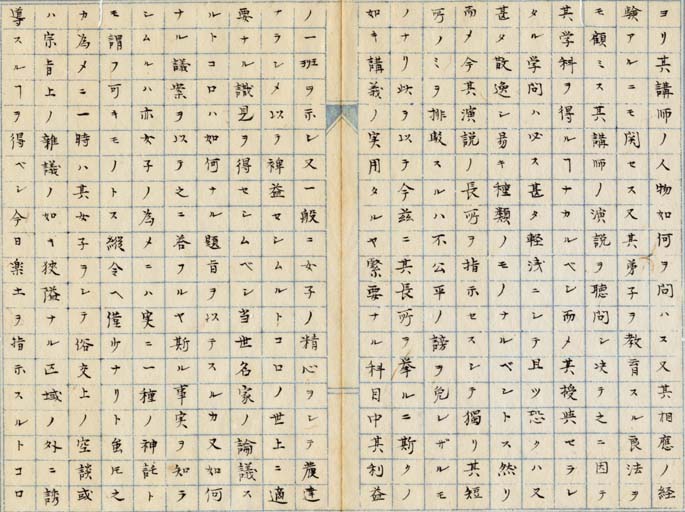 ヨリ其講師ノ人物如何ヲ問ハス又其相應ノ経
験アルニモ関セス又其弟子ヲ教育スル良法ヲ
モ顧ミス其講師ノ演説ヲ聴問シ决テ之ニ因テ
其学科ヲ得ルヿナカルベシ而メ其授與セラレ
タル学問ハ必ス甚タ軽浅ニシテ且ツ恐クハ又
甚タ散逸シ易キ種類ノモノナルベシトス然リ
而メ今其演説ノ長所ヲ指示セスシテ獨リ其短
所ノミヲ排毀スルハ不公平ノ謗ヲ免レザルモ
ノナリ此ヲ以テ今茲ニ其長所ヲ挙ルニ斯クノ
如キ講義ノ実用タルヤ緊要ナル科目中其利益
ノ一班ヲ示シ又一般ニ女子ノ精心ヲシテ發達
ナラシメ以テ裨益セシムルトコロノ世上ニ適
要ナル識見ヲ得セシムベシ当世名家ノ論議ス
ルトコロハ如何ナル題旨ヲ以テスルカ又如何
ナル議案ヲ以テ之ニ答フルヤ斯ル事実ヲ知ラ
シムルハ亦女子ノ為メニハ実ニ一種ノ神託ト
モ謂フ可キモノトス縦令ヘ僅少ナリト虽𪜈之
カ為メニ一時ハ其女子ヲシテ俗交上ノ空談或
ハ宗旨上ノ雜議ノ如キ狹隘ナル区域ノ外ニ誘
導スルヿヲ得ベシ今日楽土ヲ指示スルトコロ